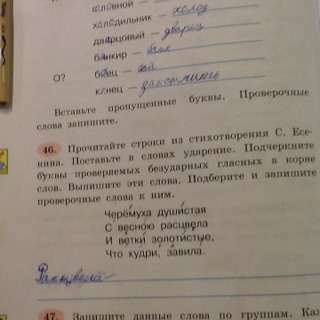 головной –
холодильник – холод
дворцовый – дворец
банкир – банк
О? боец – бой
конец –
Вставьте пропущенные буквы. Проверочные
слова запишите.
46. Прочитайте строки из стихотворения С. Есе-
нина. Поставьте в словах ударение. Подчеркните
буквы проверяемых безударных гласных в корне
слов. Выпишите эти слова. Подберите и запишите
проверочные слова к ним.
Черёмуха душистая
С весною расцвела
И ветки золотистые,
Что кудри, завила.
Расцвела
47. Запишите данные слова по группам.